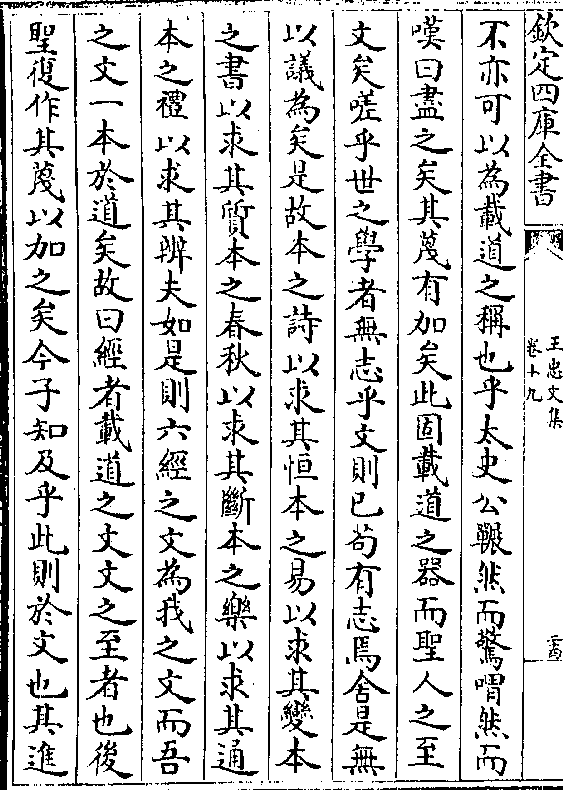 欽定四庫全書
王忠文集
卷十九
二十四
不亦可以為載道之稱也乎太史公囅然而驚喟然而
嘆曰盡之矣其蔑有加矣此固載道之器而聖人之至
文矣嗟乎世之學者無志乎文則已苟有志焉舍是無
以議為矣是故本之詩以求其恒本之易以求其變本
之書以求其質本之春秋以求其斷本之樂以求其通
本之禮以求其辨夫如是則六經之文為我之文而吾
之文一本於道矣故曰經者載道之文文之至者也後
聖復作其蔑以加之矣今子知及乎此則於文也其進